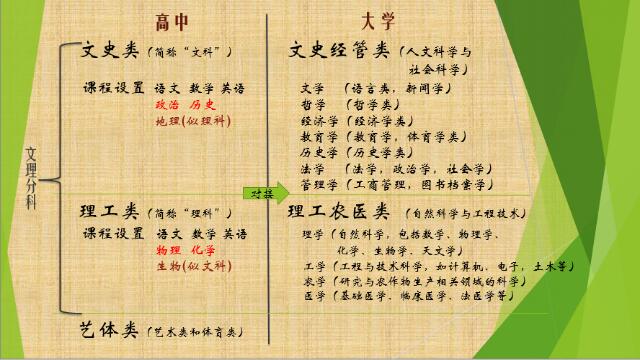 高中
大学
文理分科
文史类（简称“文科”）
课程设置 语文 数学 英语
政治 历史
地理(似理科)
理工类（简称“理科”）
课程设置 语文 数学 英语
物理 化学
生物(似文科)
艺体类（艺术类和体育类）
对接
文史经管类（人文科学与
社会科学）
文学 （语言类，新闻学）
哲学 （哲学类）
经济学（经济学类）
教育学（教育学，体育学类）
历史学（历史学类）
法学 （法学，政治学，社会学）
管理学（工商管理，图书档案学）
理工农医类 （自然科学与工程技术）
理学（自然科学，包括数学、物理学、
化学、生物学、天文学）
工学（工程与技术科学，如计算机，电子，土木等）
农学（研究与农作物生产相关领域的科学）
医学（基础医学、临床医学、法医学等）